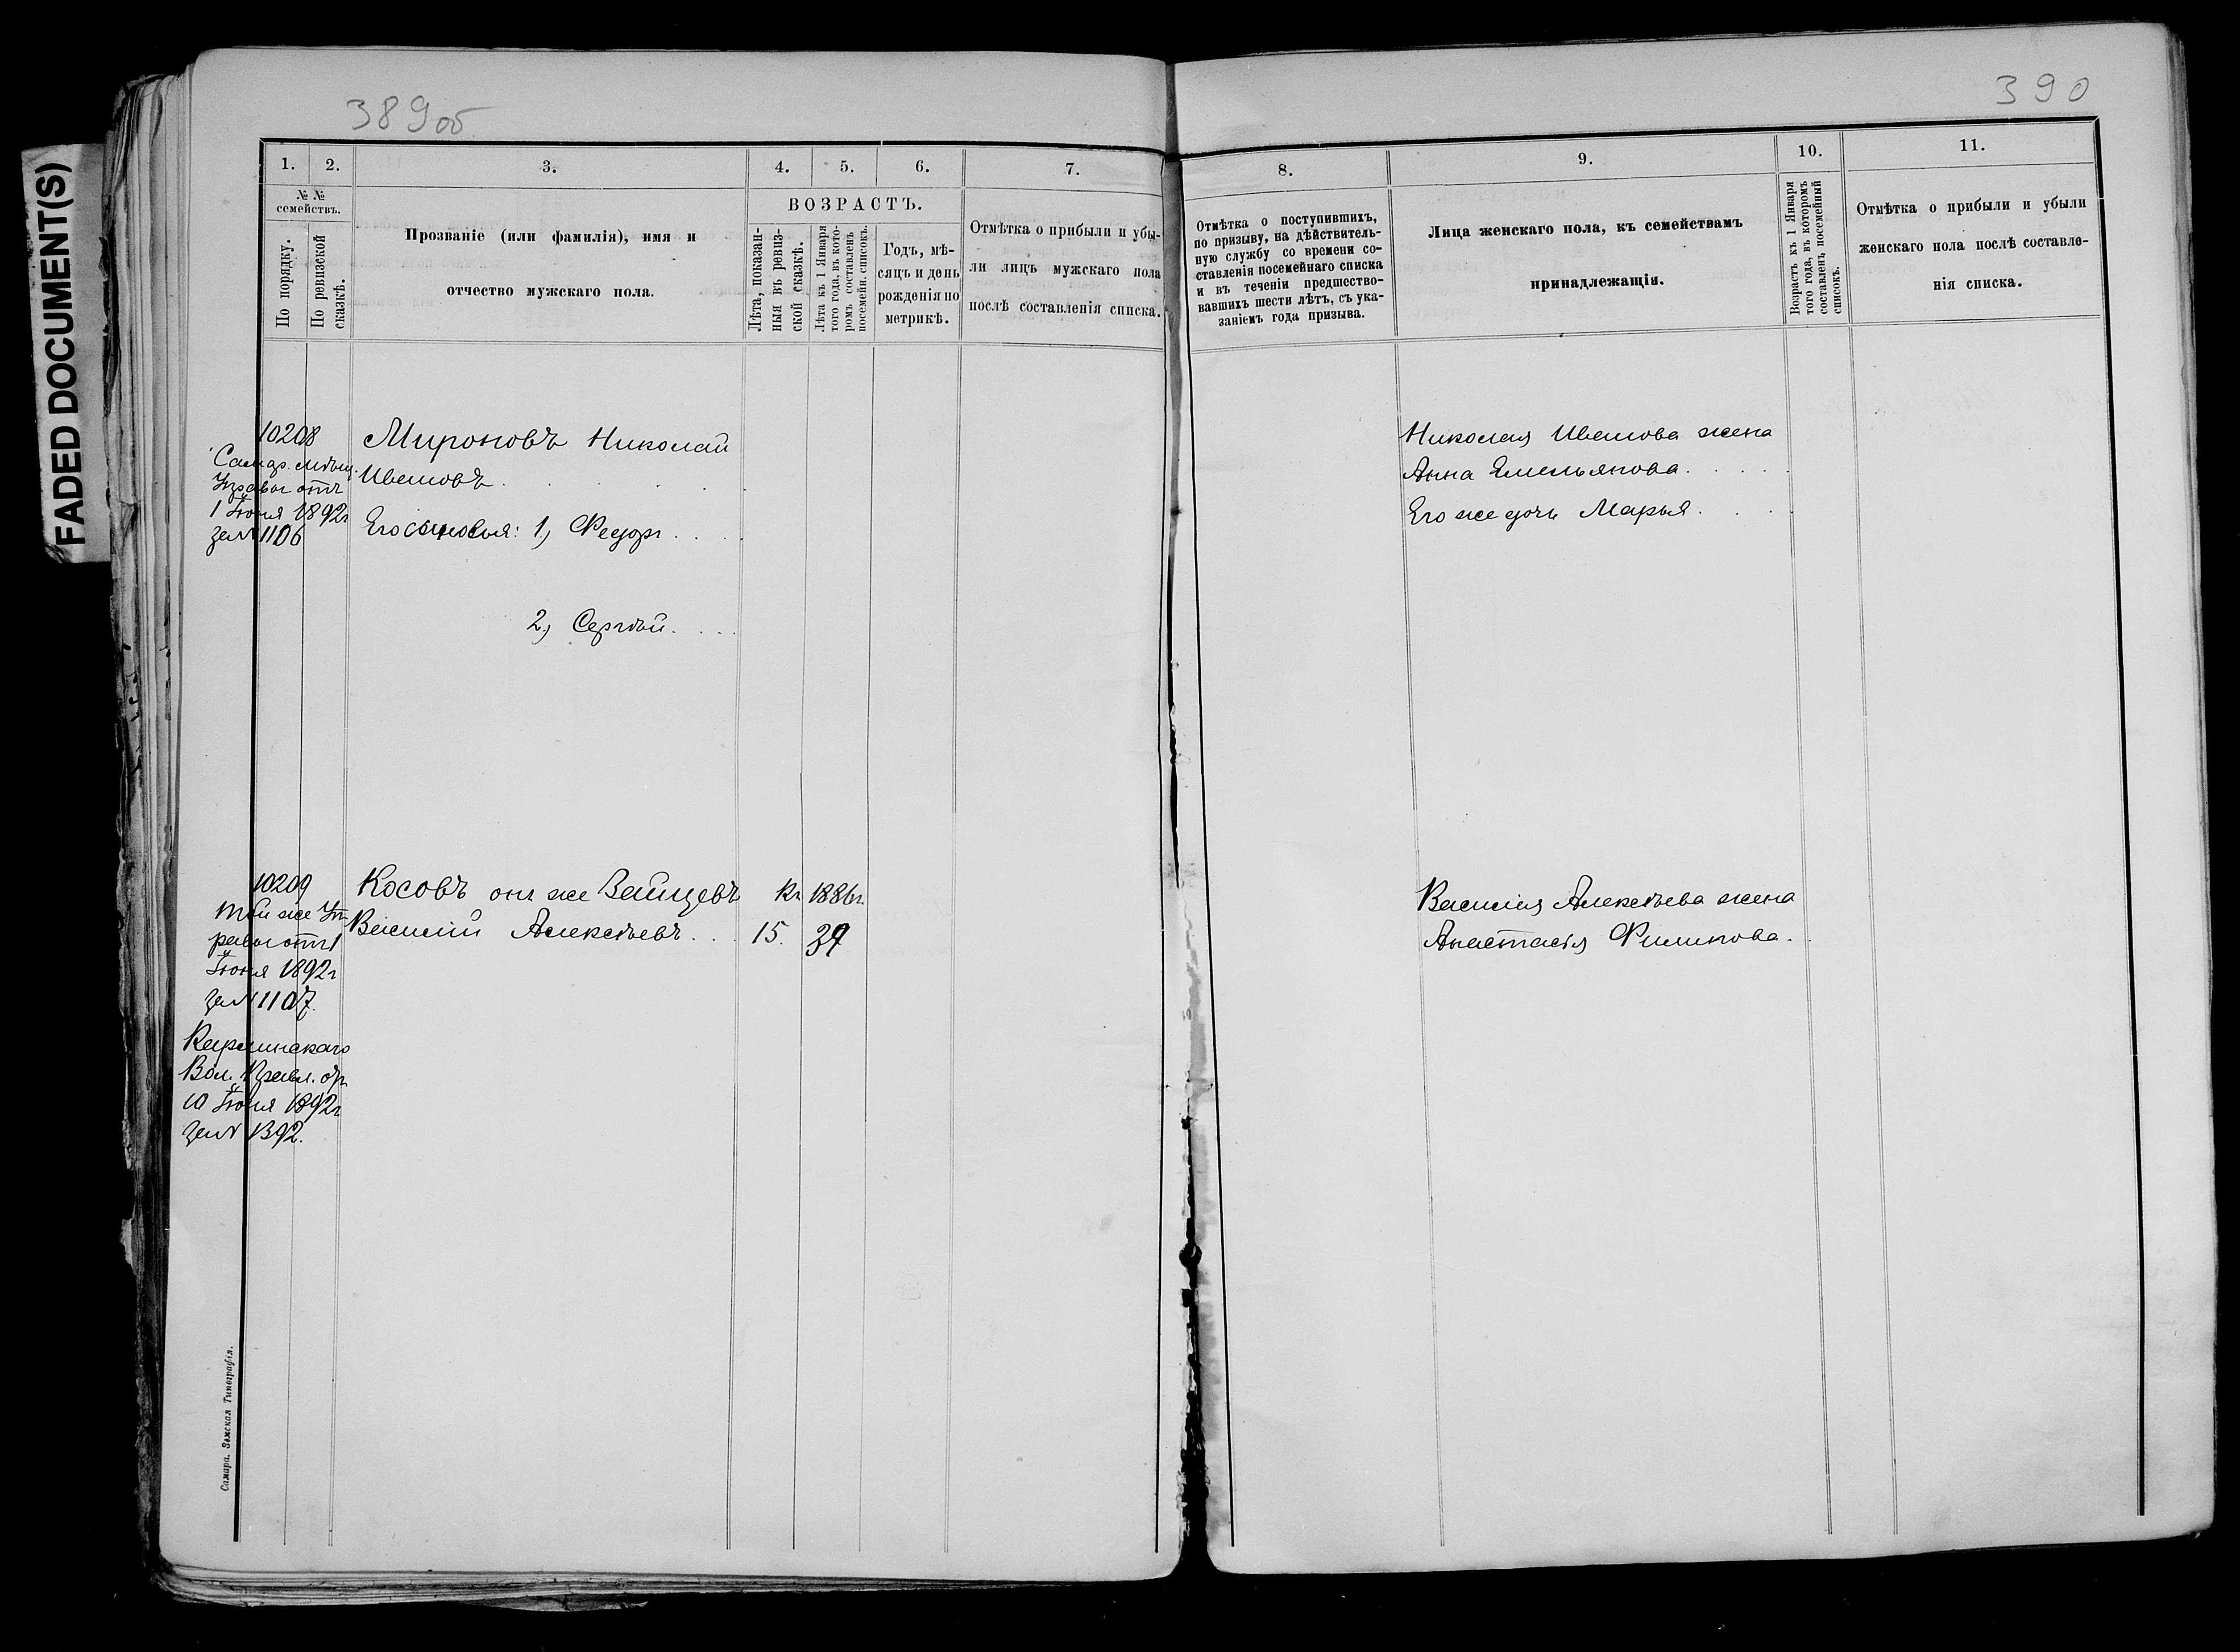 FADED DOCUMENT(S)
389об
390
1.
2.
3.
4.
5.
6.
7.
№ №
семействъ.
По порядку.
По ревизской
сказкѣ.
Прозваніе (или фамилія), имя и
отчество мужскаго пола.
ВОЗРАСТЪ.
Лѣта, показан-
ныя въ ревиз-
ской сказкѣ.
Лѣта къ 1 Января
того года, въ кото-
ромъ составленъ
посемейн. списокъ.
Годъ, мѣ-
сяцъ и день
рожденія по
метрикѣ.
Отмѣтка о прибыли и убы-
ли лицъ мужскаго пола
послѣ составленія списка.
8.
9.
10.
11.
Отмѣтка о поступившихъ,
по призыву, на дѣйствитель-
ную службу со времени со-
ставленія посемейнаго списка
и въ теченіи предшество-
вавшихъ шести лѣтъ, съ ука-
заніемъ года призыва.
Лица женскаго пола, къ семействамъ
принадлежащія.
Возрастъ къ 1 Января
того года, въ которомъ
составленъ посемейный
списокъ.
Отмѣтка о прибыли и убыли
женскаго пола послѣ составле-
нія списка.
10208
Самар. мѣщ.
Управы отъ
1 Іюня 1892г
за № 1106
Мироновъ Николай
Ивановъ
Его сыновья: 1, Федоръ
2, Сергѣй
Николая Иванова жена
Анна Емельянова
Его же дочь Марья
10209
той же Уп-
равы отъ 1
Іюня 1892г
за № 1107.
Косовъ онъ же Зайцевъ
Къ 1886г.
Василій Алексѣевъ
15.
Василія Алексѣева жена
Анастасія Филипова.
Вол. Правл. отъ
10 Іюня 1892г
за № 1392.
Самара. Земская Типографія.